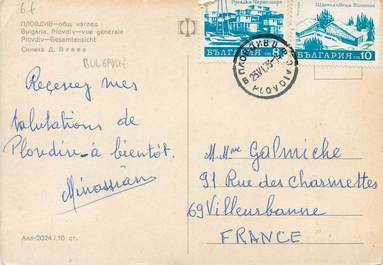 6€
ПЛОВДИВ—общ изглед
Bulgaria, Plovdiv—vue générale
Plovdiv—Gesamtansicht
Снимка Д. Влаев
BULGARIE
Recevez mes
salutations de
Plovdiv-à bientôt.
Minassian
Ахл-2024 / 10 ст.
БЪЛГАРИЯ 8
БЪЛГАРИЯ 10
ПЛОВДИВ
PLOVDIV
M. Mme Galmiche
91 Rue des Charmettes
69 Villeurbanne
FRANCE